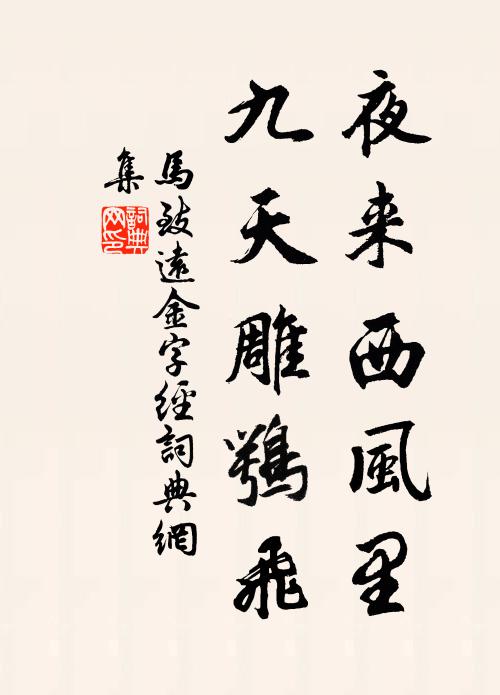 夜来西風里
九天雕鶚飛
馬致遠金字經詞典網
集
詞典
网印